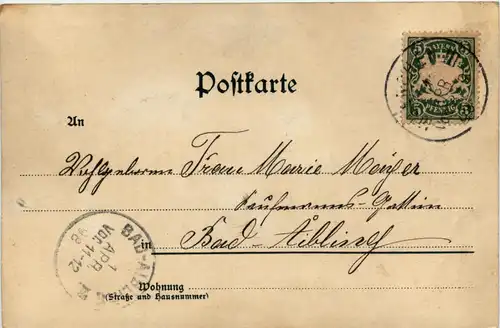 BAYERN
5 5
PFENNIG
Postkarte
An
Wohlgeborne Frau Marie Mayer
Kaufmanns-Gattin
in Bad-Aibling
BAD-AIBLING
1
APR
VOR 11-12
98
Wohnung
(Straße und Hausnummer)